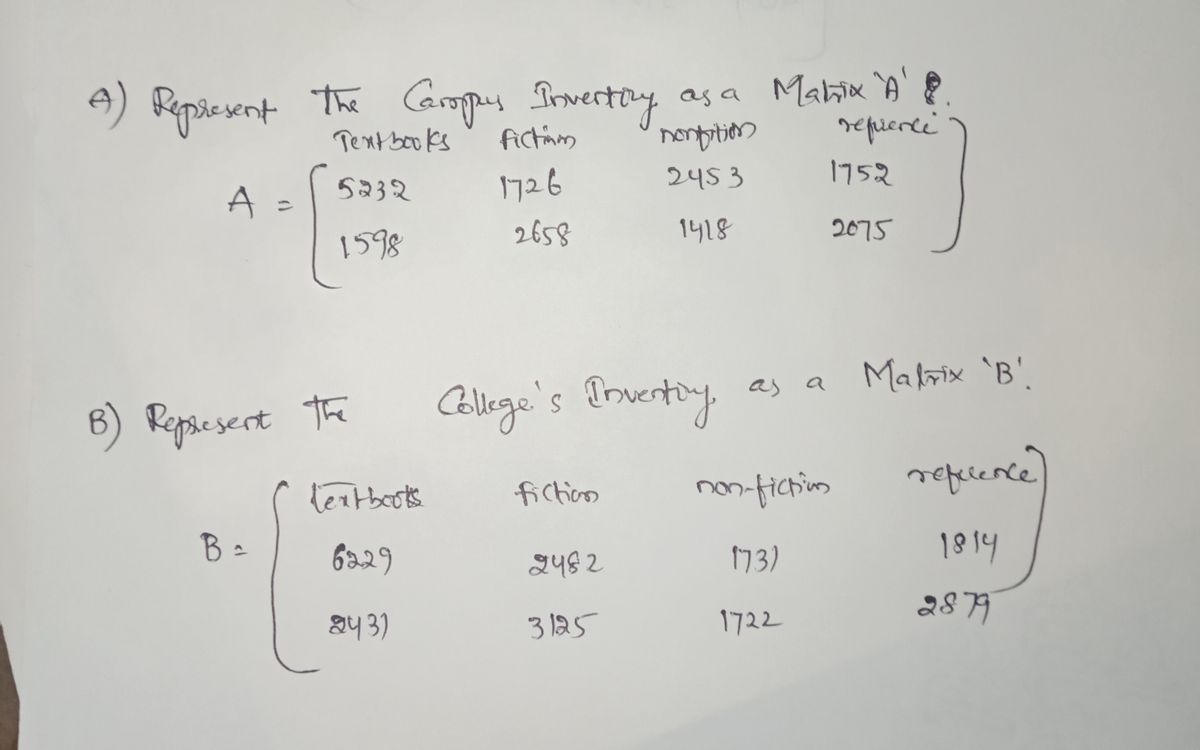 A) Represent The Campus Inventory as a Matrix 'A'
Textbooks fiction nonfition refrence
A = 5232 1726 2453 1752
1598 2658 1418 2075
B) Represent The College's Inventory as a Matrix 'B'.
textbooks fiction non-fiction refrence
B = 6229 2482 1731 1814
2431 3125 1722 2879